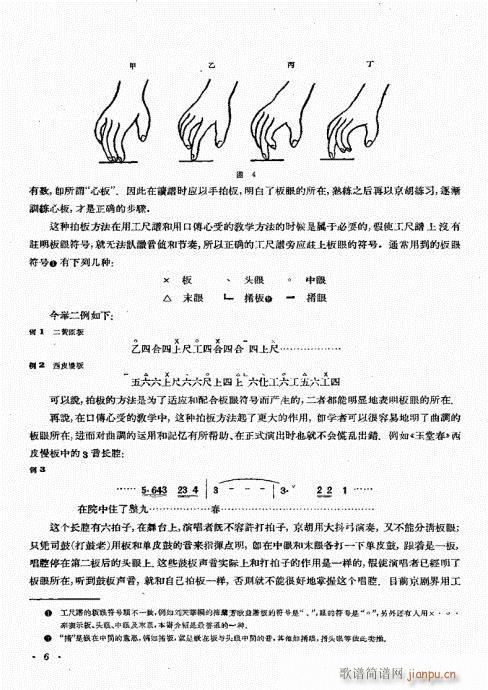 甲 乙 丙 丁
图 4
有数,卽所謂“心板”. 因此在讀譜时应以手拍板,明白了板眼的所在,熟練之后再以京胡練习,逐漸
訓練心板,才是正确的步驟.
这种拍板方法在用工尺譜和用口傳心受的教学方法的时候是属于必要的,假使工尺譜上没有
註明板眼符号,就无法認識音值和节奏,所以正确的工尺譜旁应註上板眼的符号. 通常用到的板眼
符号❶有下列几种:
× 板 、 头眼 ◦ 中眼
△ 末眼 ∟ 掯板❷ − 掯眼
今举二例如下:
例 1 二黄原板
乙四合四上尺工四合四合 四上尺
例 2 西皮慢板
五六六上尺六六尺上四上 六化工六工五六工四
可以說,拍板的方法是为了适应和配合板眼符号而产生的,二者都能明显地表明板眼的所在.
再說,在口傳心受的教学中,这种拍板方法起了更大的作用,卽学者可以很容易地明了曲調的
板眼所在,进而对曲調的运用和記忆有所帮助、在正式演出时也就不会慌乱出錯. 例如《玉堂春》西
皮慢板中的 3 音长腔:
例 3
5·643 23 4 | 3 - - - | 3·ˇ 2 2 1 ……
在院中住了整九 春
这个长腔有六拍子,在舞台上,演唱者旣不容許打拍子,京胡用大抖弓演奏,又不能分清板眼;
只凭司鼓(打鼓老)用板和单皮鼓的音来指揮点明,卽在中眼和末眼各打一下单皮鼓,跟着是一板,
唱腔停在第二板后的头眼上.这些鼓板声音实际上和打拍子的作用是一样的,假使演唱者已經明了
板眼所在,听到鼓板声音,就和自己拍板一样,否則就不能很好地掌握这个唱腔. 目前京剧界用工
❷ “掯”是嵌在中間的意思,例如掯板,就是嵌在板与头眼中間的音,其他如掯眼,掯头眼等依此类推.
· 6 ·
歌谱简谱网
jianpu.cn